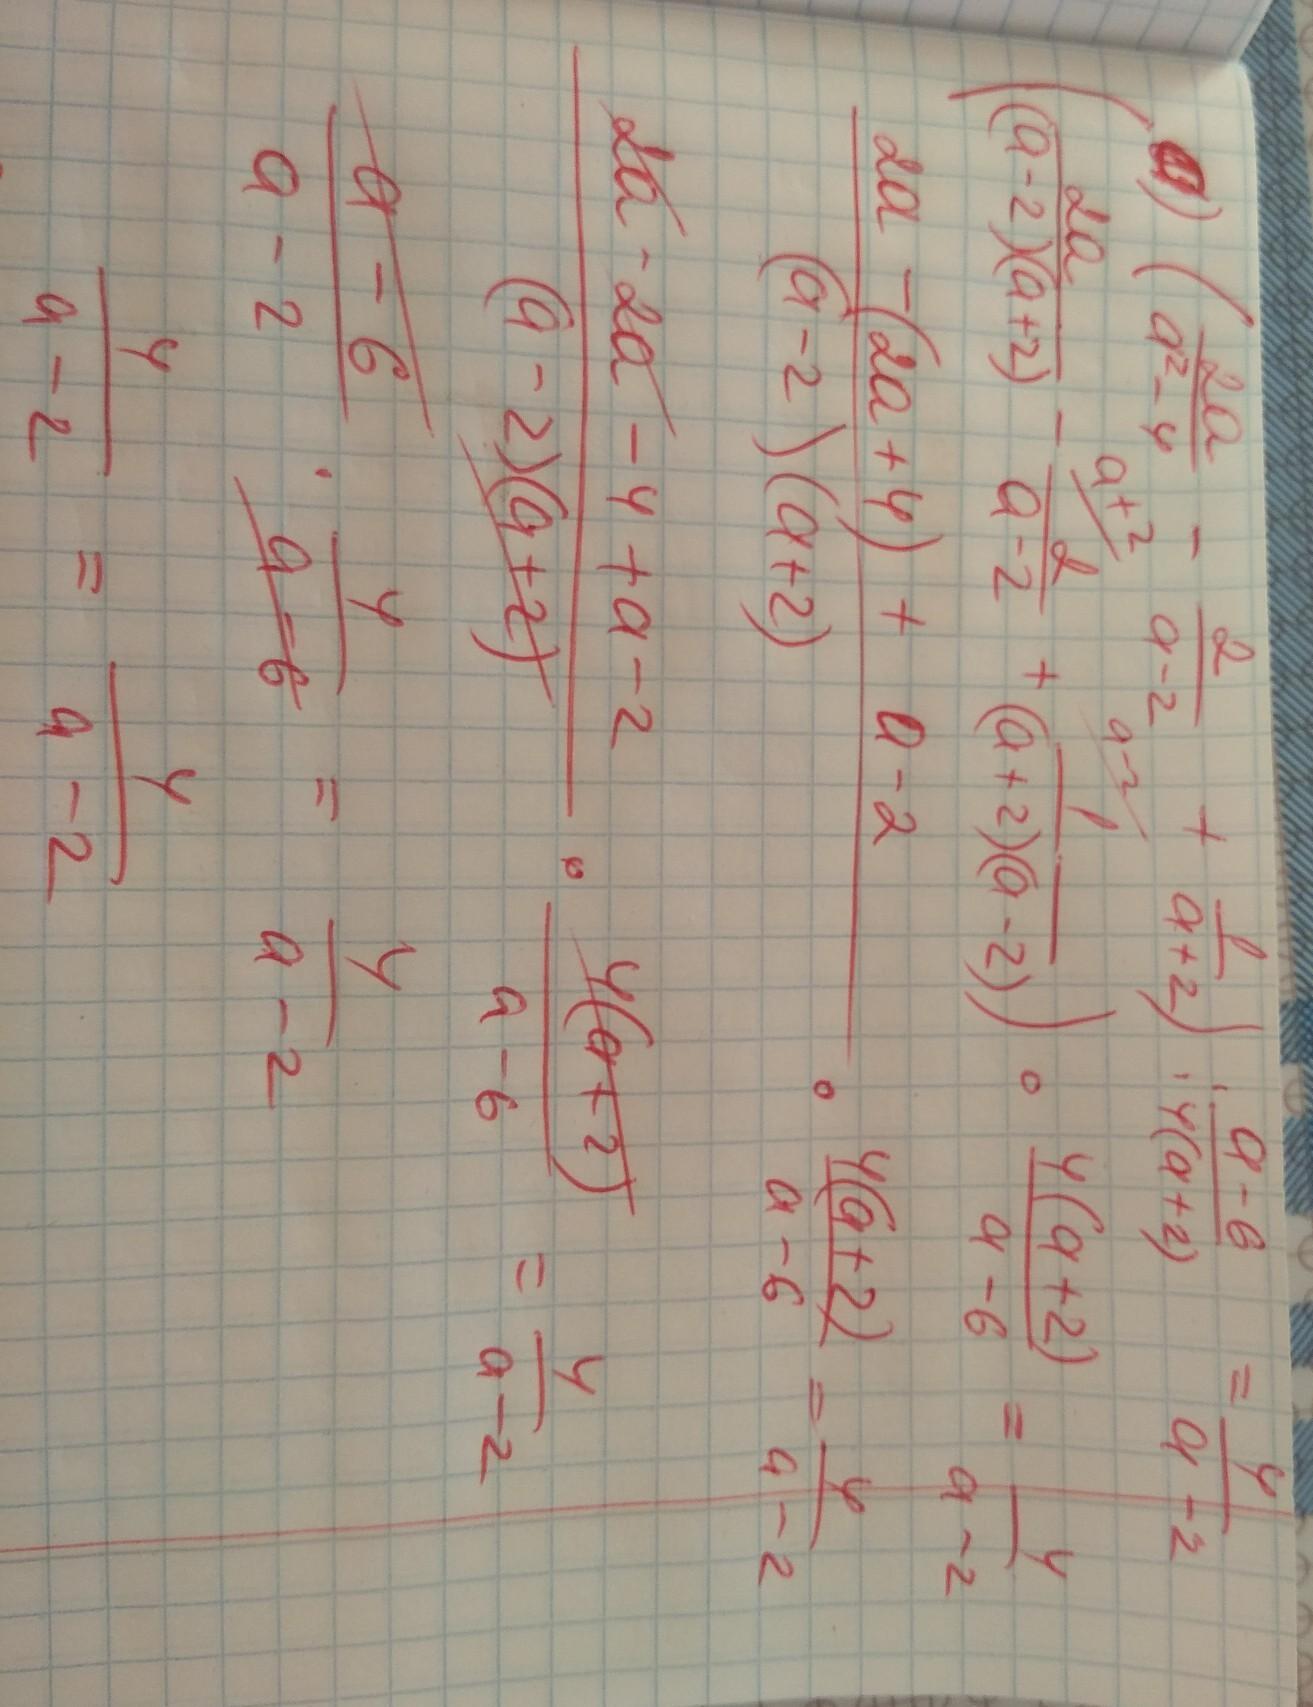 1) (2a/(a²-4) - 2/(a-2) + 1/(a+2)) : (a-6)/(4(a+2)) = 4/(a-2)
a+2 a-2
(2a/((a-2)(a+2)) - 2/(a-2) + 1/((a+2)(a-2))) · 4(a+2)/(a-6) = 4/(a-2)
(2a-(2a+4)+a-2)/((a-2)(a+2)) · 4(a+2)/(a-6) = 4/(a-2)
(2a-2a-4+a-2)/((a-2)(a+2)) · 4(a+2)/(a-6) = 4/(a-2)
(a-6)/(a-2) · 4/(a-6) = 4/(a-2)
4/(a-2) = 4/(a-2)